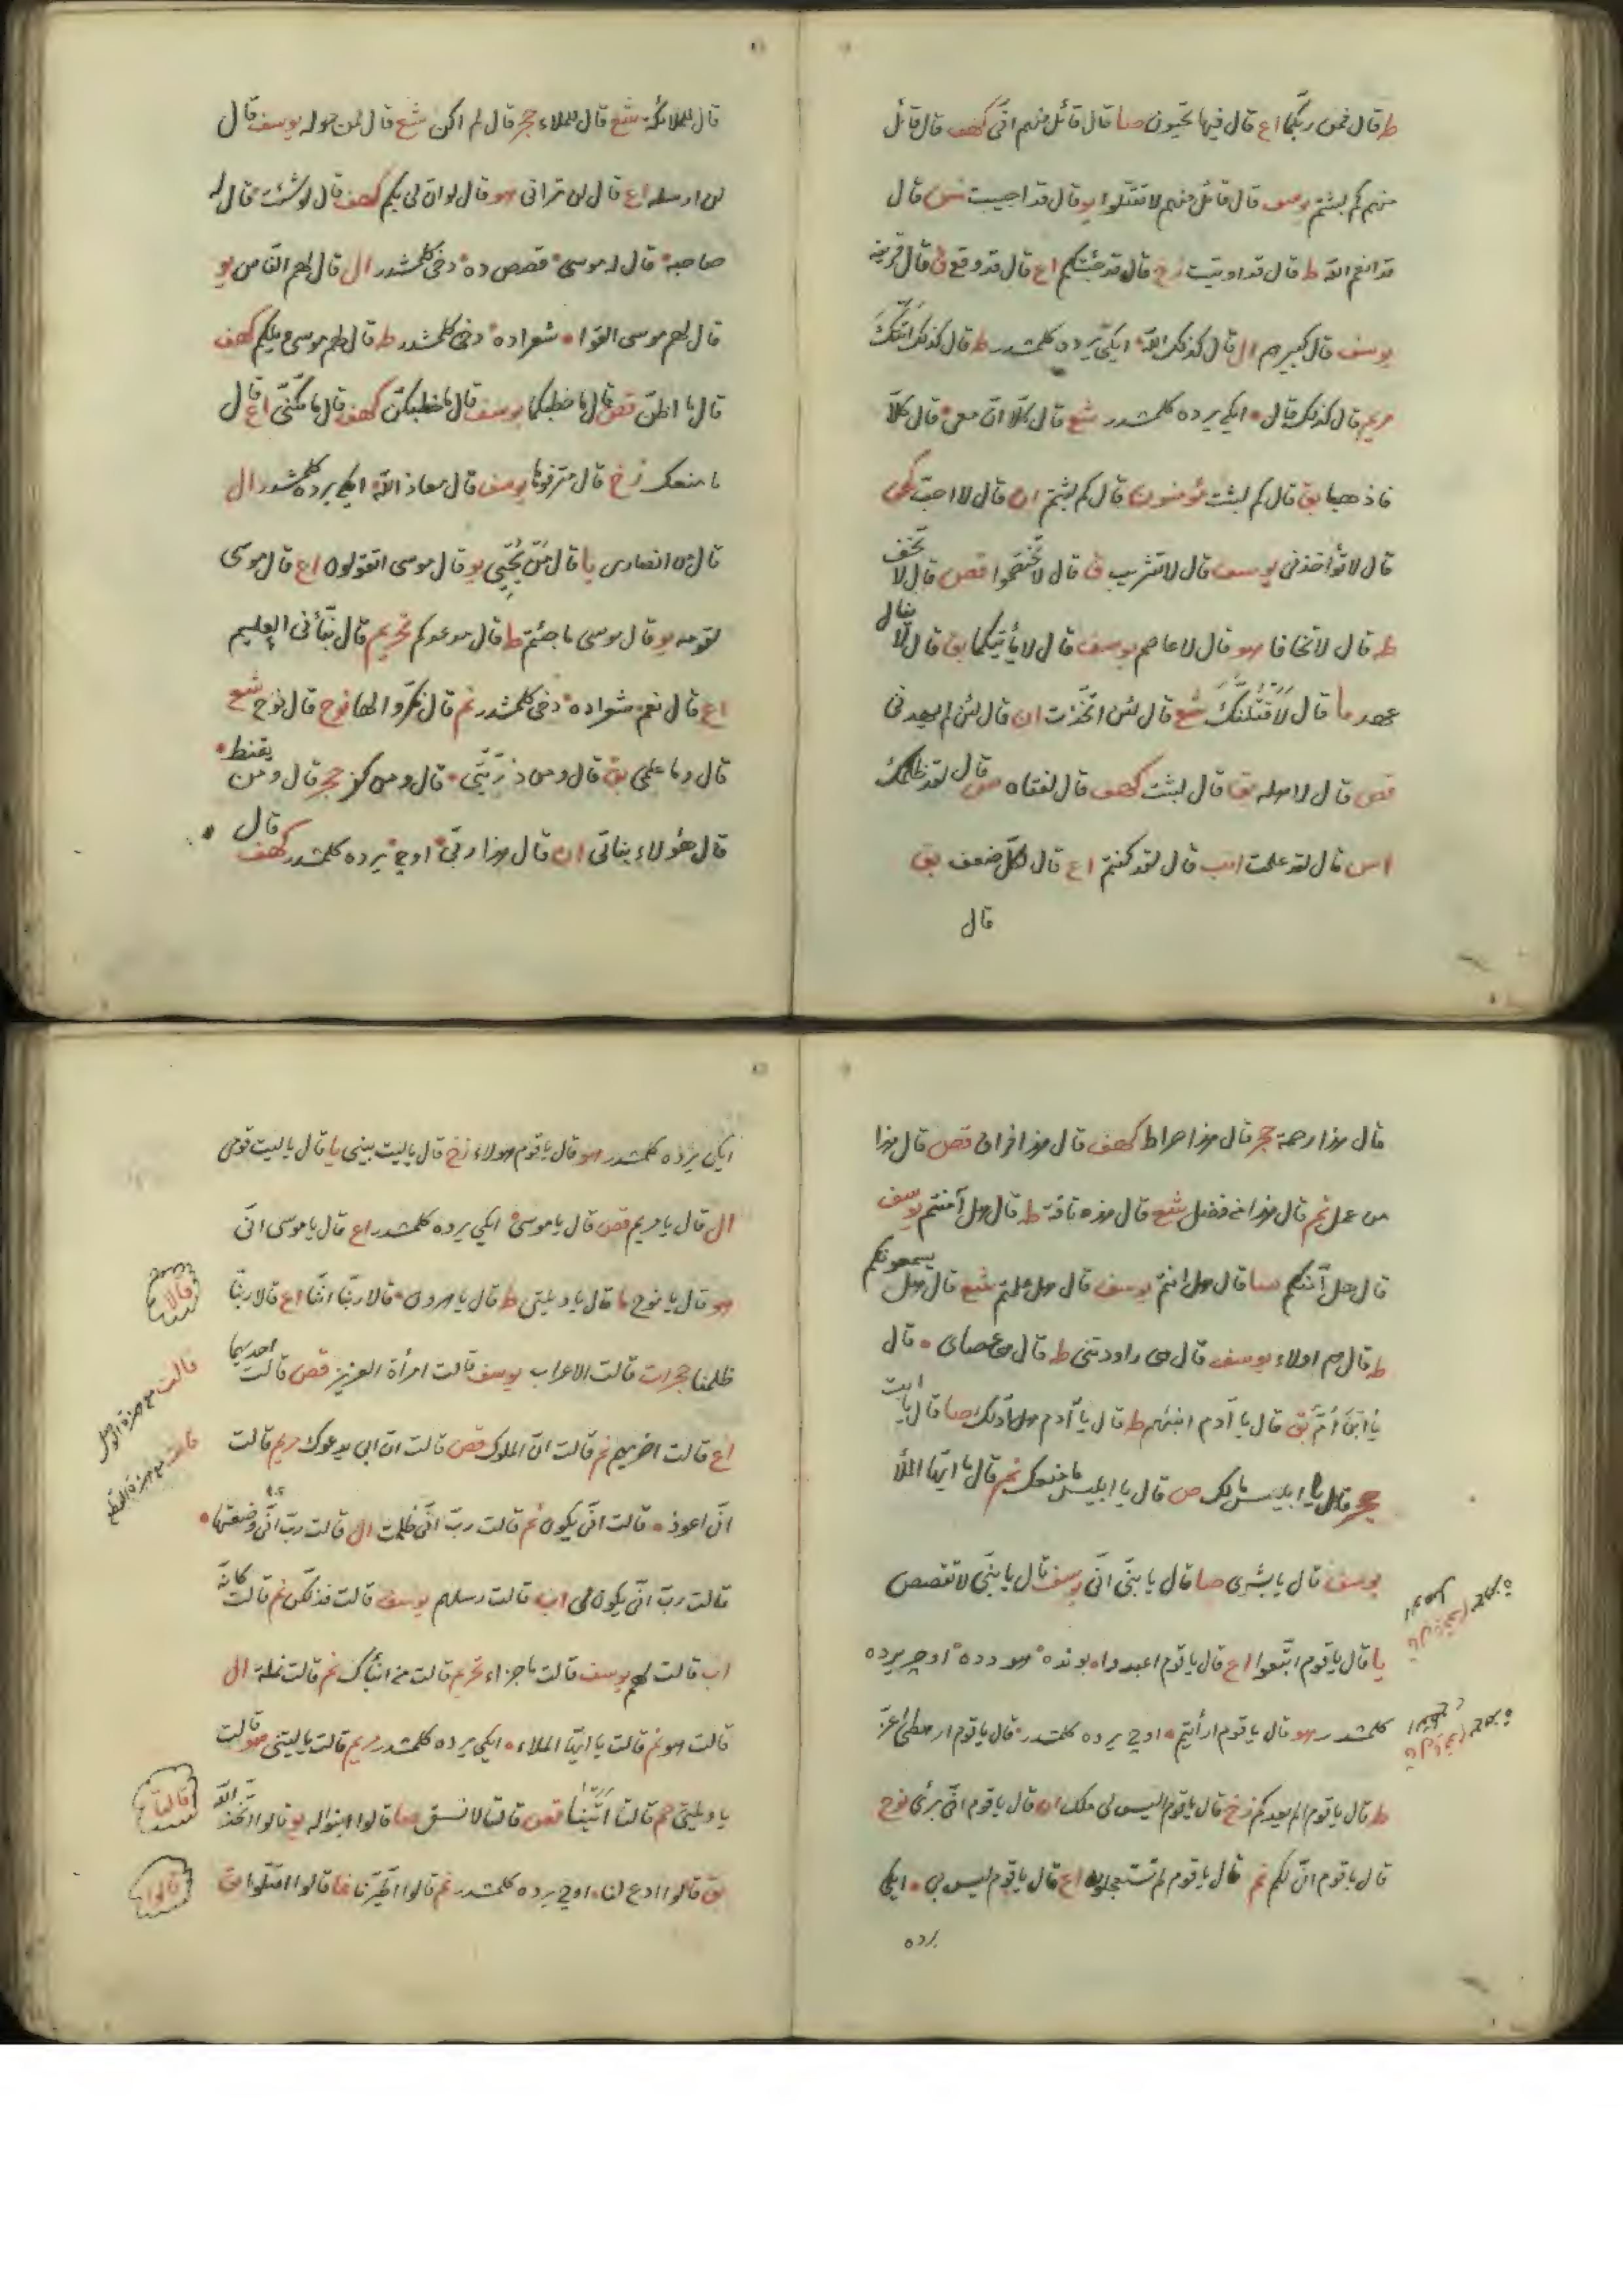 ط قال فمن ربكما اع قال فيها تحيون صا قال قائل منهم انى كهف قال قائل
منهم كم لبثتم يوسف قال قائل منهم لا تقتلوا يو قال قد اجيبت نس قال
قد انعم الله ط قال قد اوتيت زخ قال قد جئتكم اع قال قد وقع ق قال قرينه
يوسف قال كبيرهم ال قال كذلك الله ايكى يرده كلمشدر ط قال كذلك اتتك
مريم قال كذلك قال ايكى يرده كلمشدر شع قال كلّا انّ معى قال كلّا
فاذهبا بق قال كم لبثت مؤمنون قال كم لبثتم ان قال لا احبّ كهف
قال لا تؤاخذنى يوسف قال لا تثريب ق قال لا تختصموا قصص قال لا تخف
ط قال لا تخافا هو قال لا عاصم يوسف قال لا يأتيكما بق قال لا ينال
عهد ما قال لَاَقْتُلَنَّكَ شع قال لئن اتّخذت ان قال لئن لم يهدنى
قص قال لاهله بق قال لبثت كهف قال لفتاه ص قال لقد ظلمك
اس قال لقد علمت انب قال لقد كنتم اع قال لكلّ ضعف بق
قال
قال للملائكة شع قال للملاء حجر قال لم اكن شع قال لمن حوله يوسف قال
لن ارسله اع قال لن ترانى هو قال لو انّ لى بكم كهف قال لو شئت فقال له
صاحبه قال له موسى قصص ده دخى كلمشدر ال قال لهم الناس يو
قال لهم موسى القوا شعراده دخى كلمشدر ط قال لهم موسى ويلكم كهف
قال ما اظنّ قص قال ما خطبكما يوسف قال ما خطبكنّ كهف قال ما مكّنّى اع قال
ما منعك زخ قال مترفوها يوسف قال معاذ الله ايكى يرده كلمشدر ال
قال من انصارى يا قال من يُحْيِى يو قال موسى اتقولون اع قال موسى
لقومه يو قال موسى ما جئتم ط قال موعدكم تحريم قال نبّأنى العليم
اع قال نعم شعراده دخى كلمشدر نم قال نكّروا لها نوح قال نوح شع
قال وما علمى بق قال ومن ذرّيّتى قال ومن كفر حجر قال ومن يقنط
قال هؤلاء بناتى ان قال هذا ربّى اوچ يرده كلمشدر كهف قال
قال هذا رحمة حجر قال هذا صراط كهف قال هذا فراق قصص قال هذا
من عمل نم قال هذا من فضل شع قال هذه ناقة ط قال هل آمنتم يوسف
قال هل آمنكم صا قال هل انتم يوسف قال هل علمتم شع قال هل يسمعونكم
ط قال هم اولاء يوسف قال هى راودتنى ط قال هى عصاى قال
يا ابْنَ اُمَّ بق قال يا آدم انبئهم ط قال يا آدم هل ادلّك صا قال يا ابت
حجر قال يا ابليس مالك ص قال يا ابليس ما منعك نم قال يا ايّها الملأ
يوسف قال يا بشرى صا قال يا بنىّ انّى يوسف قال يا بنىّ لا تقصص
يا قال يا قوم اتّبعوا اع قال يا قوم اعبدوا بونده هود ده اوچ يرده
كلمشدر هو قال يا قوم ارأيتم اوچ يرده كلمشدر قال يا قوم ارهطى اعزّ
ط قال يا قوم الم يعدكم زخ قال يا قوم اليس لى ملك ان قال يا قوم انّى برئ نوح
قال يا قوم انّى لكم نم قال يا قوم لم تستعجلون اع قال يا قوم ليس بى ايكى
يرده
ايكى يرده كلمشدر هو قال يا قوم هؤلاء زخ قال يا ليت بينى يا قال يا ليت قومى
ال قال يا مريم قص قال يا موسى ايكى يرده كلمشدر اع قال يا موسى انّى
هو قال يا نوح ما قال يا ويلتى ط قال يا هرون قالا ربّنا انّنا اع قالا ربّنا
قالا
ظلمنا حجرات قالت الاعراب يوسف قالت امرأة العزيز قص قالت احديهما
قالت مع همزة الوصل
اع قالت اخريهم نم قالت انّ الملوك قص قالت انّ ابى يدعوك مريم قالت
قالت مع همزة القطع
انّى اعوذ قالت انّى يكون نم قالت ربّ انّى ظلمت ال قالت ربّ انّى وضعتها
قالت ربّ انّى يكون لى اب قالت رسلهم يوسف قالت فذلكنّ نم قالت كانّه
اب قالت لهم يوسف قالت ما جزاء تحريم قالت من انبأك نم قالت نملة ال
قالت هو نم قالت يا ايّها الملاء ايكى يرده كلمشدر مريم قالت يا ليتنى هو قالت
يا ويلتى حم قالتا اتينا قصص قالتا لا نسقى صا قالوا ابنوا له يو قالوا اتّخذ الله
قالتا
بق قالوا ادع لنا اوچ يرده كلمشدر نم قالوا اطّيّرنا غا قالوا اقتلوا بق
قالوا